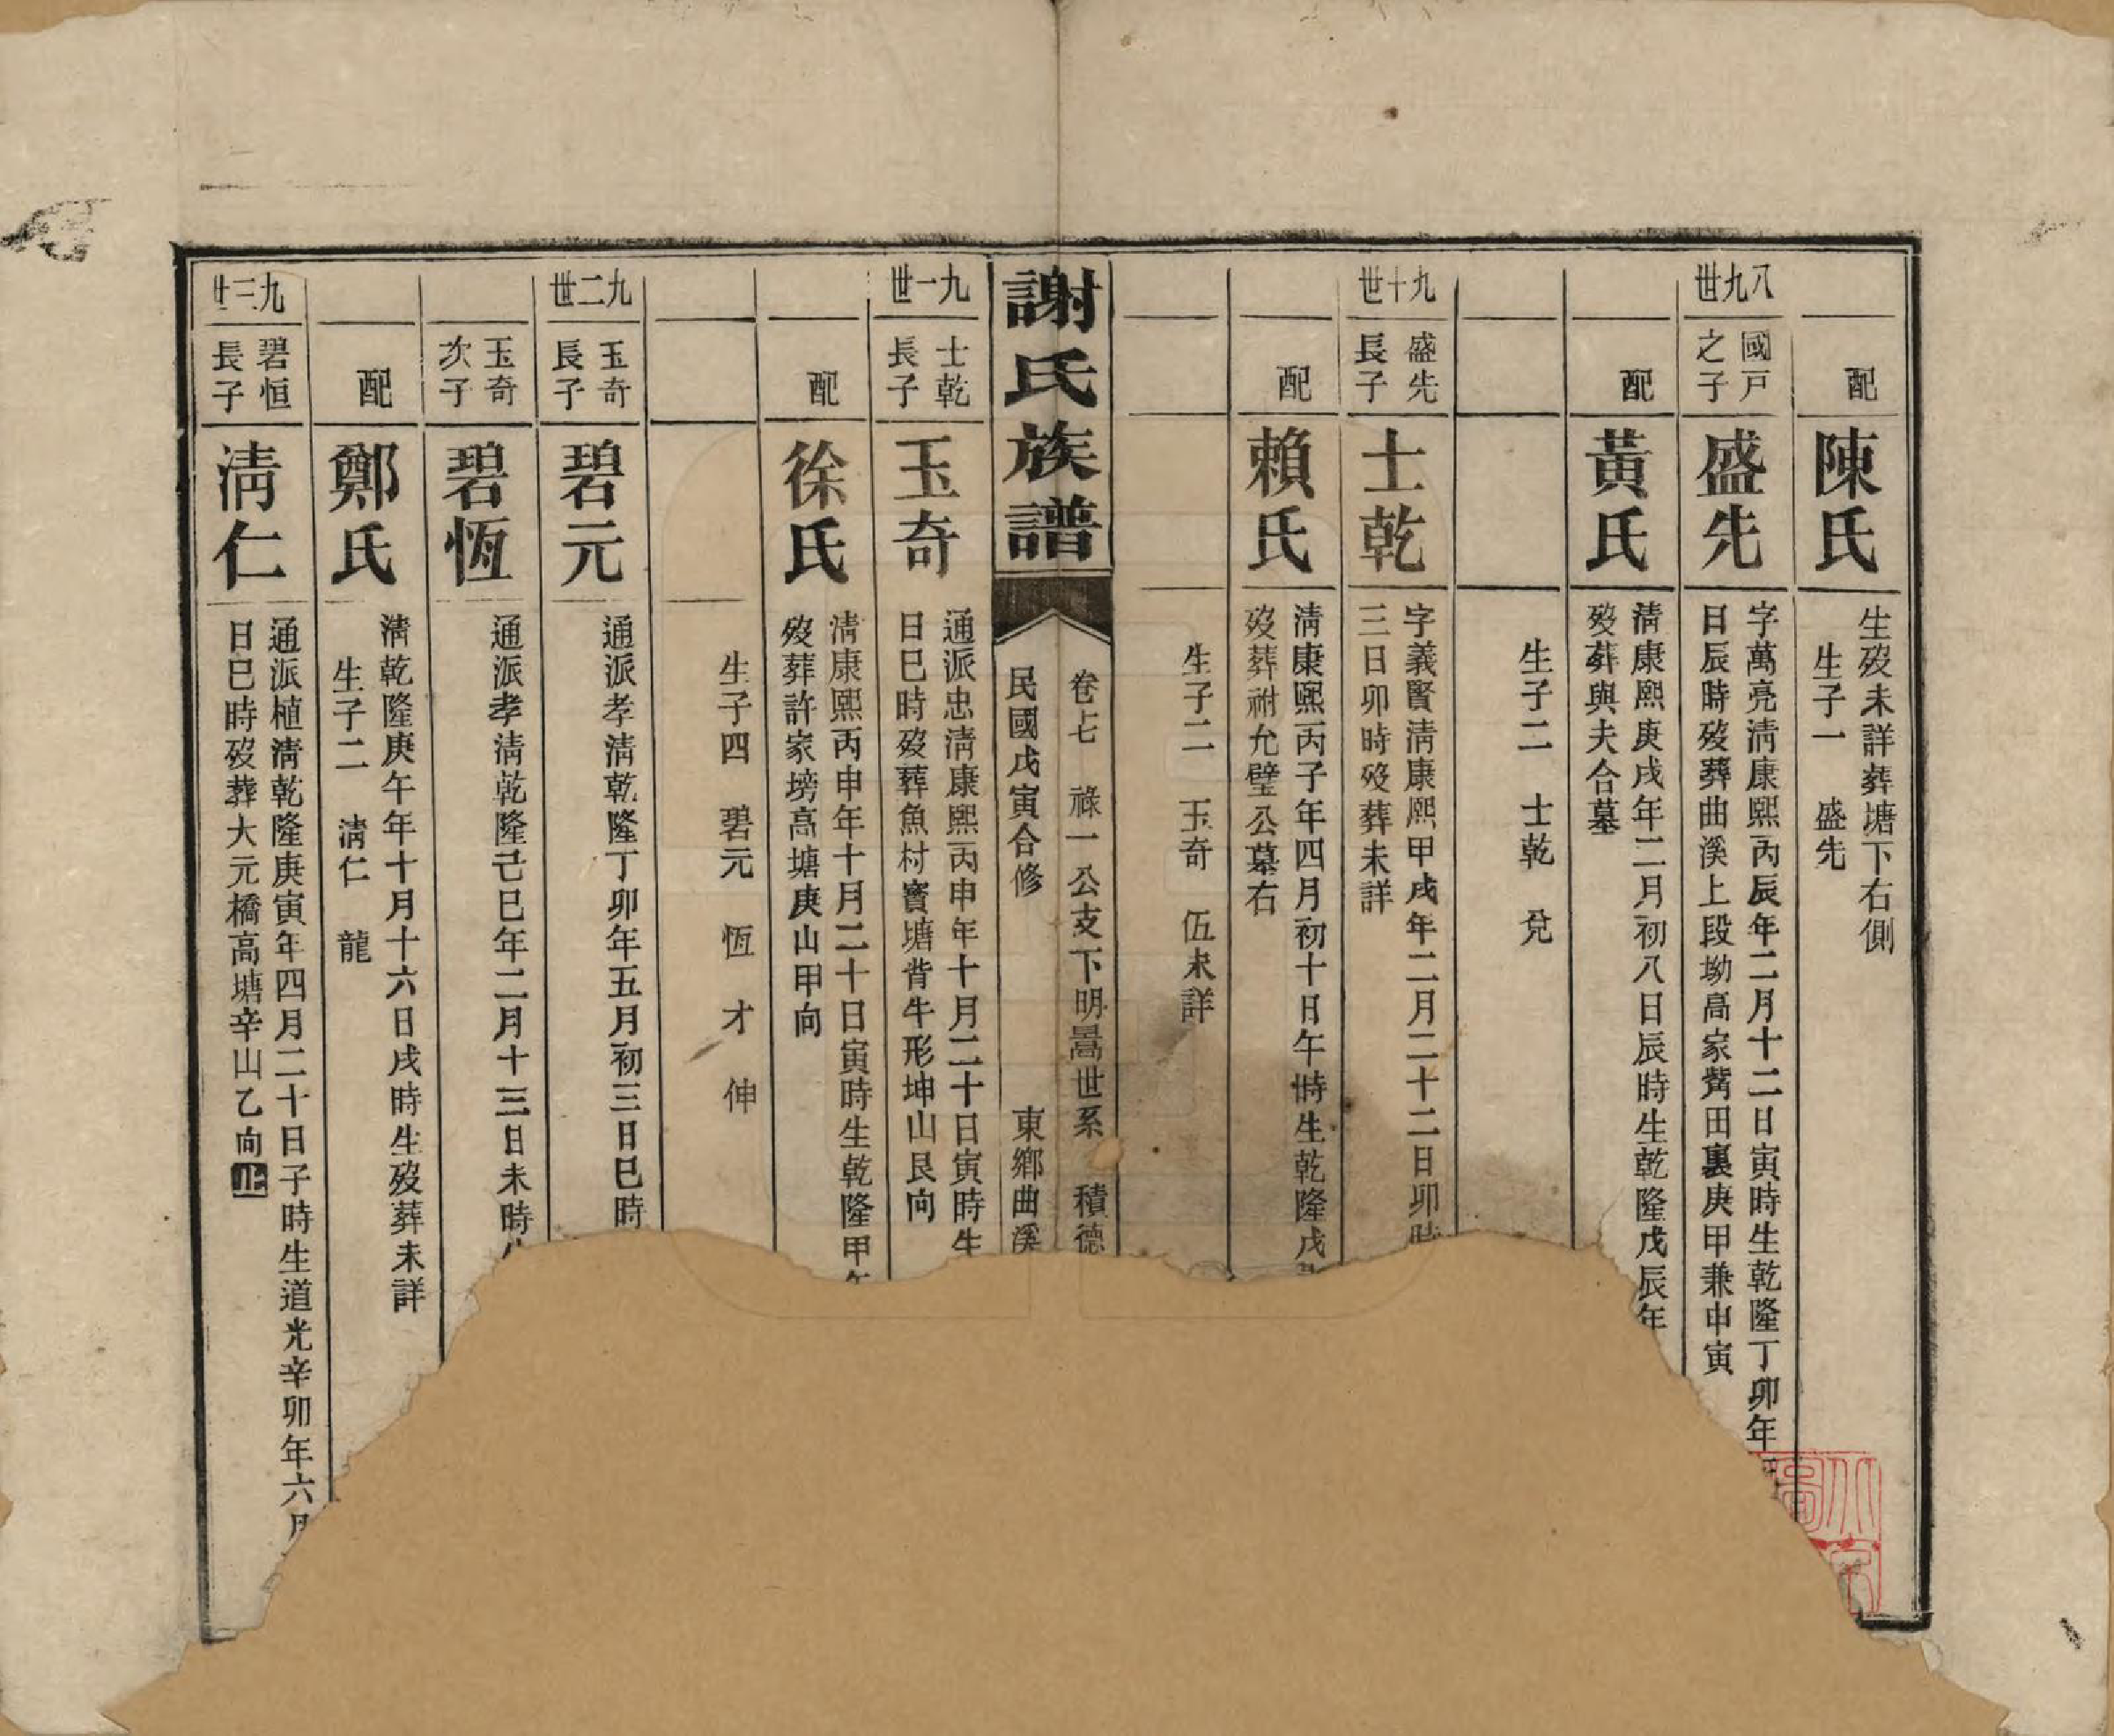 配
陳氏
生歿未詳葬塘下右側
生子一 盛先
八九世
國戸
之子
盛先
字萬亮淸康熙丙辰年二月十二日寅時生乾隆丁卯年
日辰時歿葬曲溪上段坳高家觜田裏庚甲兼申寅
配
黃氏
淸康熙庚戌年二月初八日辰時生乾隆戊辰年
歿葬與夫合墓
生子二 士乾 兌
九十世
盛先
長子
士乾
字義賢淸康熙甲戌年二月二十二日卯時
三日卯時歿葬未詳
配
賴氏
淸康熙丙子年四月初十日午時生乾隆戊
歿葬祔允璧公墓右
生子二 玉奇 伍未詳
謝氏族譜
卷七 祿一公支下明暠世系 積德
民國戊寅合修 東鄉曲溪
九一世
士乾
長子
玉奇
通派忠淸康熙丙申年十月二十日寅時生
日巳時歿葬魚村寳塘背牛形坤山艮向
配
徐氏
淸康熙丙申年十月二十日寅時生乾隆甲午
歿葬許家塝高塘庚山甲向
生子四 碧元 恆 才 伸
九二世
玉奇
長子
碧元
通派孝淸乾隆丁卯年五月初三日巳時
玉奇
次子
碧恆
通派孝淸乾隆己巳年二月十三日未時
配
鄭氏
淸乾隆庚午年十月十六日戌時生歿葬未詳
生子二 淸仁 龍
九三世
碧恒
長子
淸仁
通派植淸乾隆庚寅年四月二十日子時生道光辛卯年六月
日巳時歿葬大元橋高塘辛山乙向止